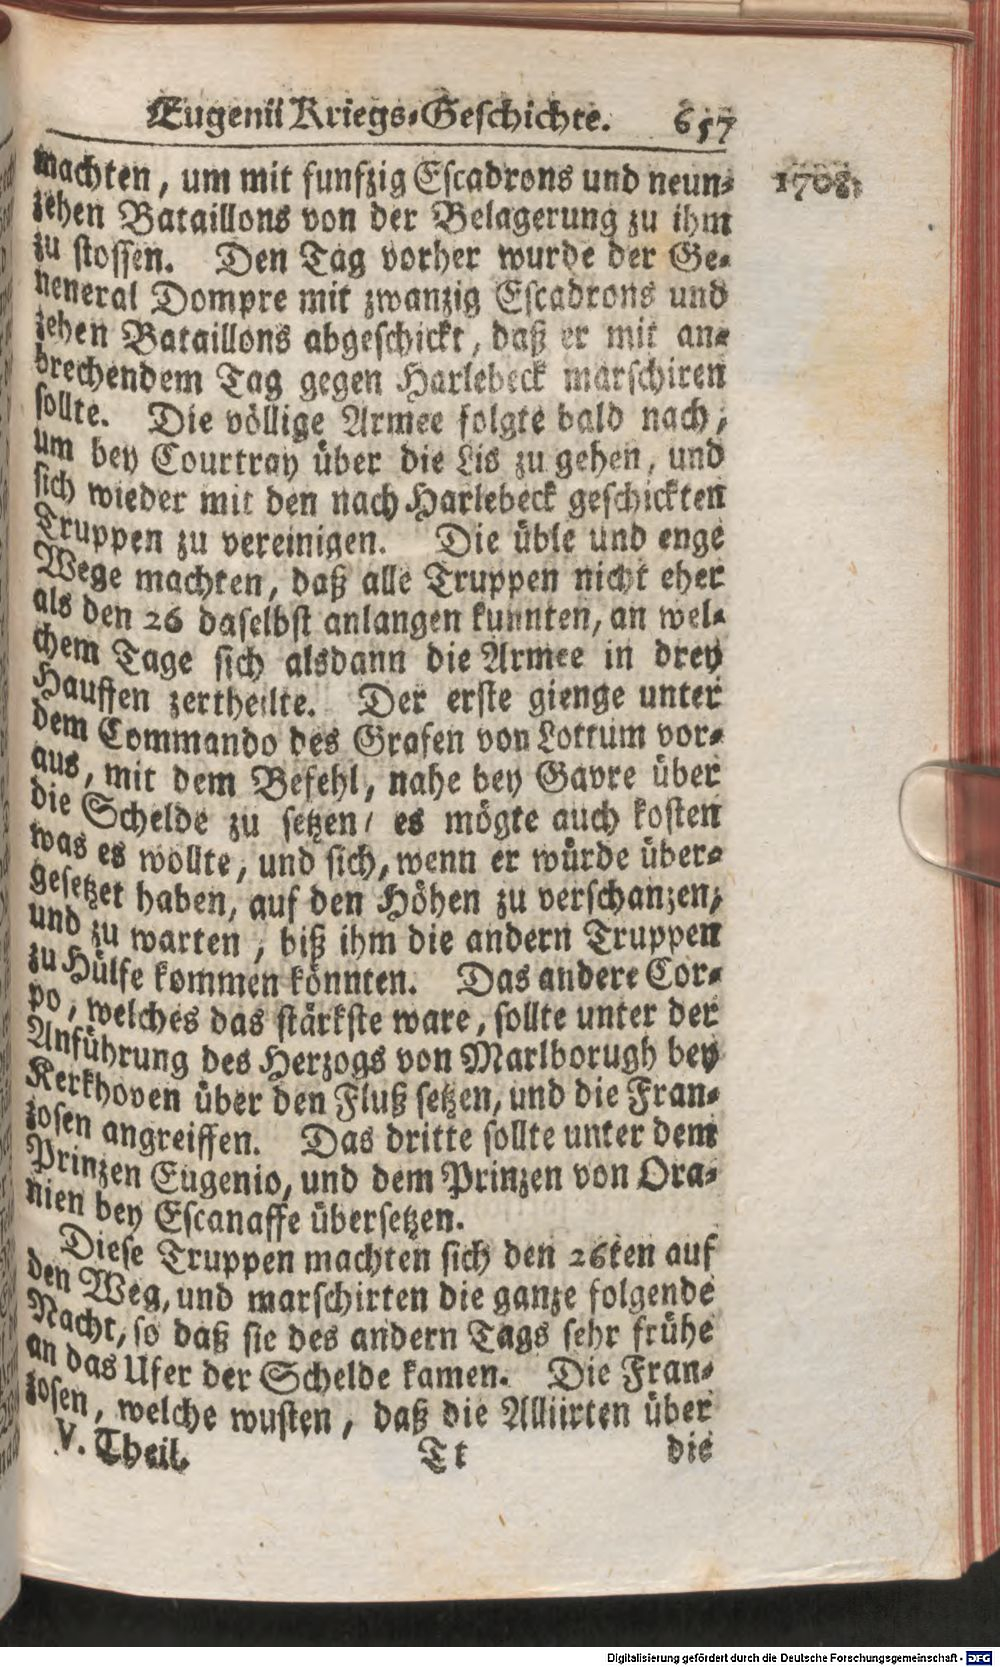 Eugenii Kriegs-Geschichte. 657
machten, um mit funfzig Escadrons und neun- 1708.
zehen Bataillons von der Belagerung zu ihm
zu stossen. Den Tag vorher wurde der Ge-
neneral Dompre mit zwanzig Escadrons und
zehen Bataillons abgeschickt, daß er mit an-
brechendem Tag gegen Harlebeck marschiren
sollte. Die völlige Armee folgte bald nach,
um bey Courtray über die Lis zu gehen, und
sich wieder mit den nach Harlebeck geschickten
Truppen zu vereinigen. Die üble und enge
Wege machten, daß alle Truppen nicht eher
als den 26 daselbst anlangen kunnten, an wel-
chem Tage sich alsdann die Armee in drey
Hauffen zertheilte. Der erste gienge unter
dem Commando des Grafen von Lottum vor-
aus, mit dem Befehl, nahe bey Gavre über
die Schelde zu setzen/ es mögte auch kosten
was es wollte, und sich, wenn er würde über-
gesetzet haben, auf den Höhen zu verschanzen,
und zu warten, biß ihm die andern Truppen
zu Hülfe kommen könnten. Das andere Cor-
po, welches das stärkste ware, sollte unter der
Anführung des Herzogs von Marlborugh bey
Kerkhoven über den Fluß setzen, und die Fran-
zosen angreiffen. Das dritte sollte unter dem
Prinzen Eugenio, und dem Prinzen von Ora-
nien bey Escanaffe übersetzen.
Diese Truppen machten sich den 26ten auf
den Weg, und marschirten die ganze folgende
Nacht, so daß sie des andern Tags sehr frühe
an das Ufer der Schelde kamen. Die Fran-
zosen, welche wusten, daß die Alliirten über
V. Theil. Tt die
Digitalisierung gefördert durch die Deutsche Forschungsgemeinschaft - DFG